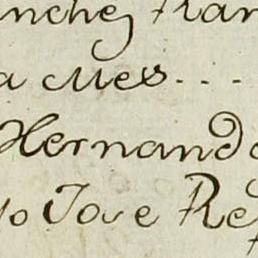 nchez Ran
a Mes....
Hernando
Jose Re